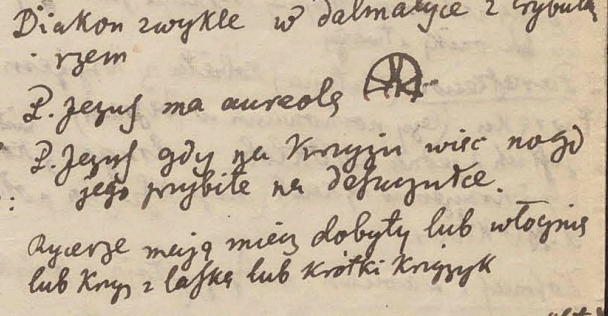 Diakon zwykle w dalmatyce z trybulą
i rzem
P. Jezus ma aureolę
P. Jezus gdy na Krzyżu więc nogi
jego przybite na deszczułce.
Rycerze mają miecz dobyty lub włócznię
lub Krzyż z laską lub krótki Krzyżyk